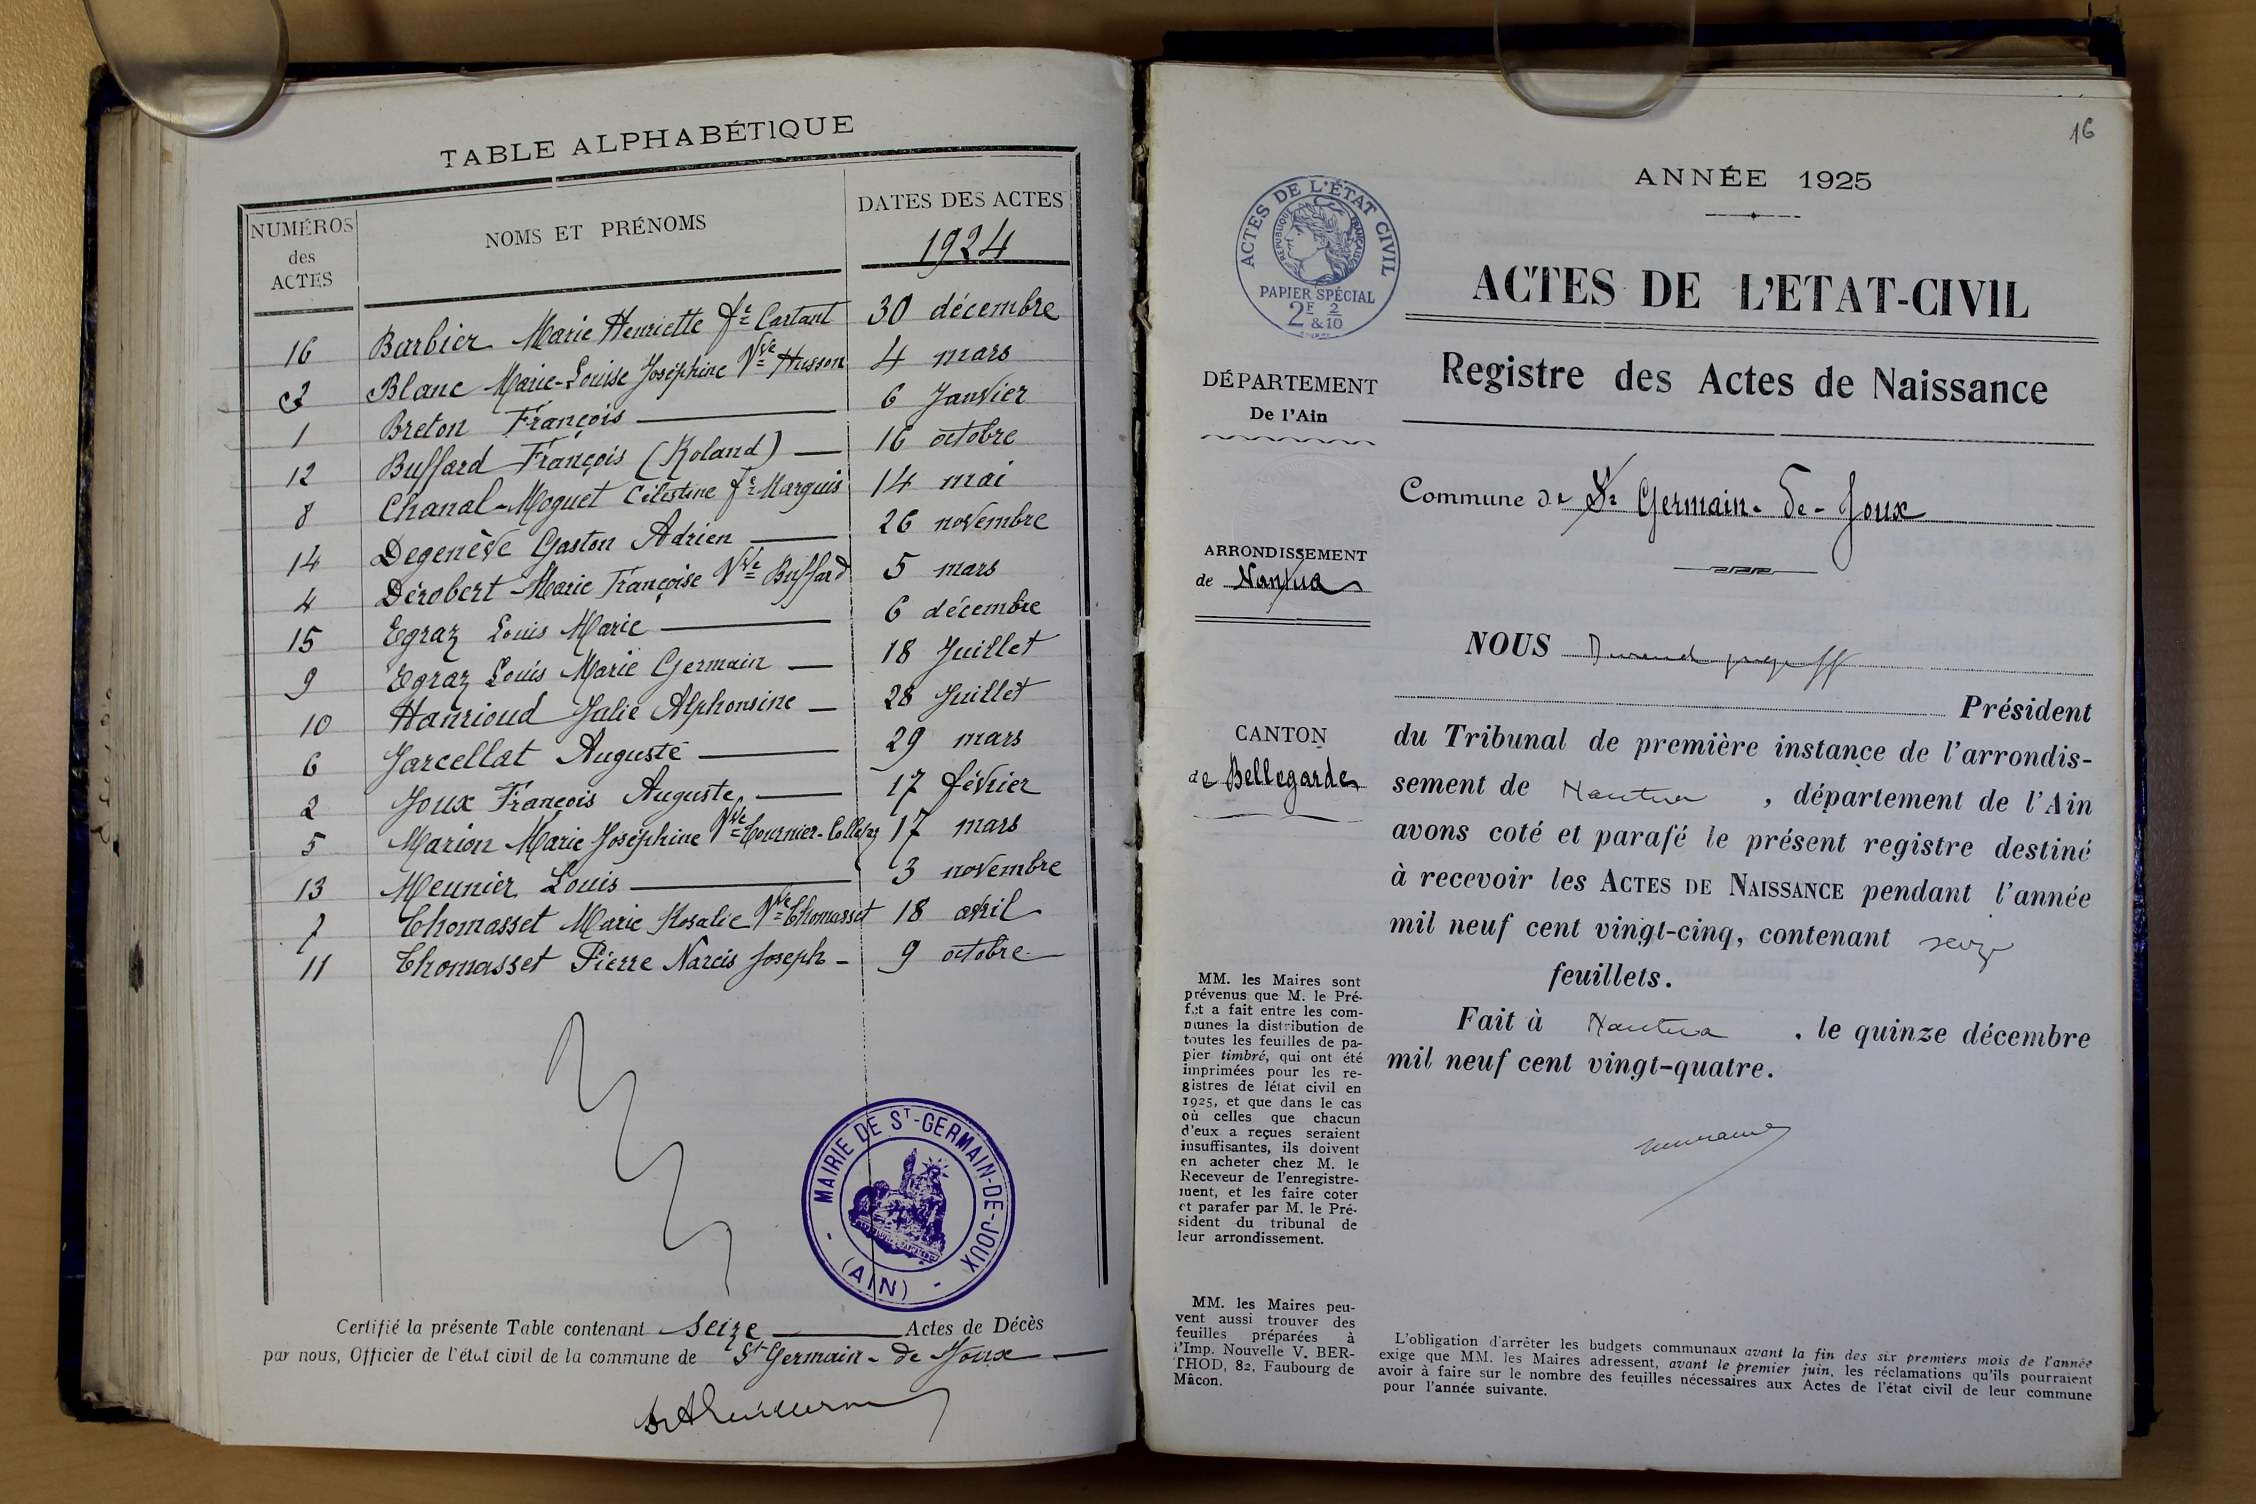 TABLE ALPHABÉTIQUE
NUMÉROS des ACTES
NOMS ET PRÉNOMS
DATES DES ACTES
1924
16 Barbier Marie Henriette fe Cartant 30 décembre
3 Blanc Marie-Louise Joséphine Vve Husson 4 mars
1 Breton François 6 Janvier
12 Buffard François (Roland) 16 octobre
8 Chanal-Moquet Célestine fe Marquis 14 mai
14 Degenève Gaston Adrien 26 novembre
4 Dérobert Marie Françoise Vve Buffard 5 mars
15 Egraz Louis Marie 6 décembre
9 Egraz Louis Marie Germain 18 Juillet
10 Hanrioud Julie Alphonsine 28 Juillet
6 Jarcellat Auguste 29 mars
2 Joux François Auguste 17 février
5 Marion Marie Joséphine Vve Tournier-Colletaz 17 mars
13 Meunier Louis 3 novembre
7 Thomasset Marie Rosalie Vve Thomasset 18 avril
11 Thomasset Pierre Narcis Joseph 9 octobre
MAIRIE DE ST-GERMAIN-DE-JOUX
- (AIN) -
Certifié la présente Table contenant seize Actes de Décès
par nous, Officier de l'état civil de la commune de St Germain-de Joux
16
ANNÉE 1925
ACTES DE L'ÉTAT CIVIL
RÉPUBLIQUE FRANÇAISE
PAPIER SPÉCIAL
2F & 2/10
ACTES DE L'ETAT-CIVIL
Registre des Actes de Naissance
DÉPARTEMENT
De l'Ain
Commune de St Germain-de-Joux
ARRONDISSEMENT
de Nantua
CANTON
de Bellegarde
NOUS
Président
du Tribunal de première instance de l'arrondis-
sement de Nantua, département de l'Ain
avons coté et parafé le présent registre destiné
à recevoir les ACTES DE NAISSANCE pendant l'année
mil neuf cent vingt-cinq, contenant seize
feuillets.
Fait à Nantua, le quinze décembre
mil neuf cent vingt-quatre.
MM. les Maires sont
prévenus que M. le Pré-
fet a fait entre les com-
munes la distribution de
toutes les feuilles de pa-
pier timbré, qui ont été
imprimées pour les re-
gistres de létat civil en
1925, et que dans le cas
où celles que chacun
d'eux a reçues seraient
insuffisantes, ils doivent
en acheter chez M. le
Receveur de l'enregistre-
ment, et les faire coter
et parafer par M. le Pré-
sident du tribunal de
leur arrondissement.
MM. les Maires peu-
vent aussi trouver des
feuilles préparées à
l'Imp. Nouvelle V. BER-
THOD, 82, Faubourg de
Mâcon.
L'obligation d'arrêter les budgets communaux avant la fin des six premiers mois de l'année
exige que MM. les Maires adressent, avant le premier juin, les réclamations qu'ils pourraient
avoir à faire sur le nombre des feuilles nécessaires aux Actes de l'état civil de leur commune
pour l'année suivante.